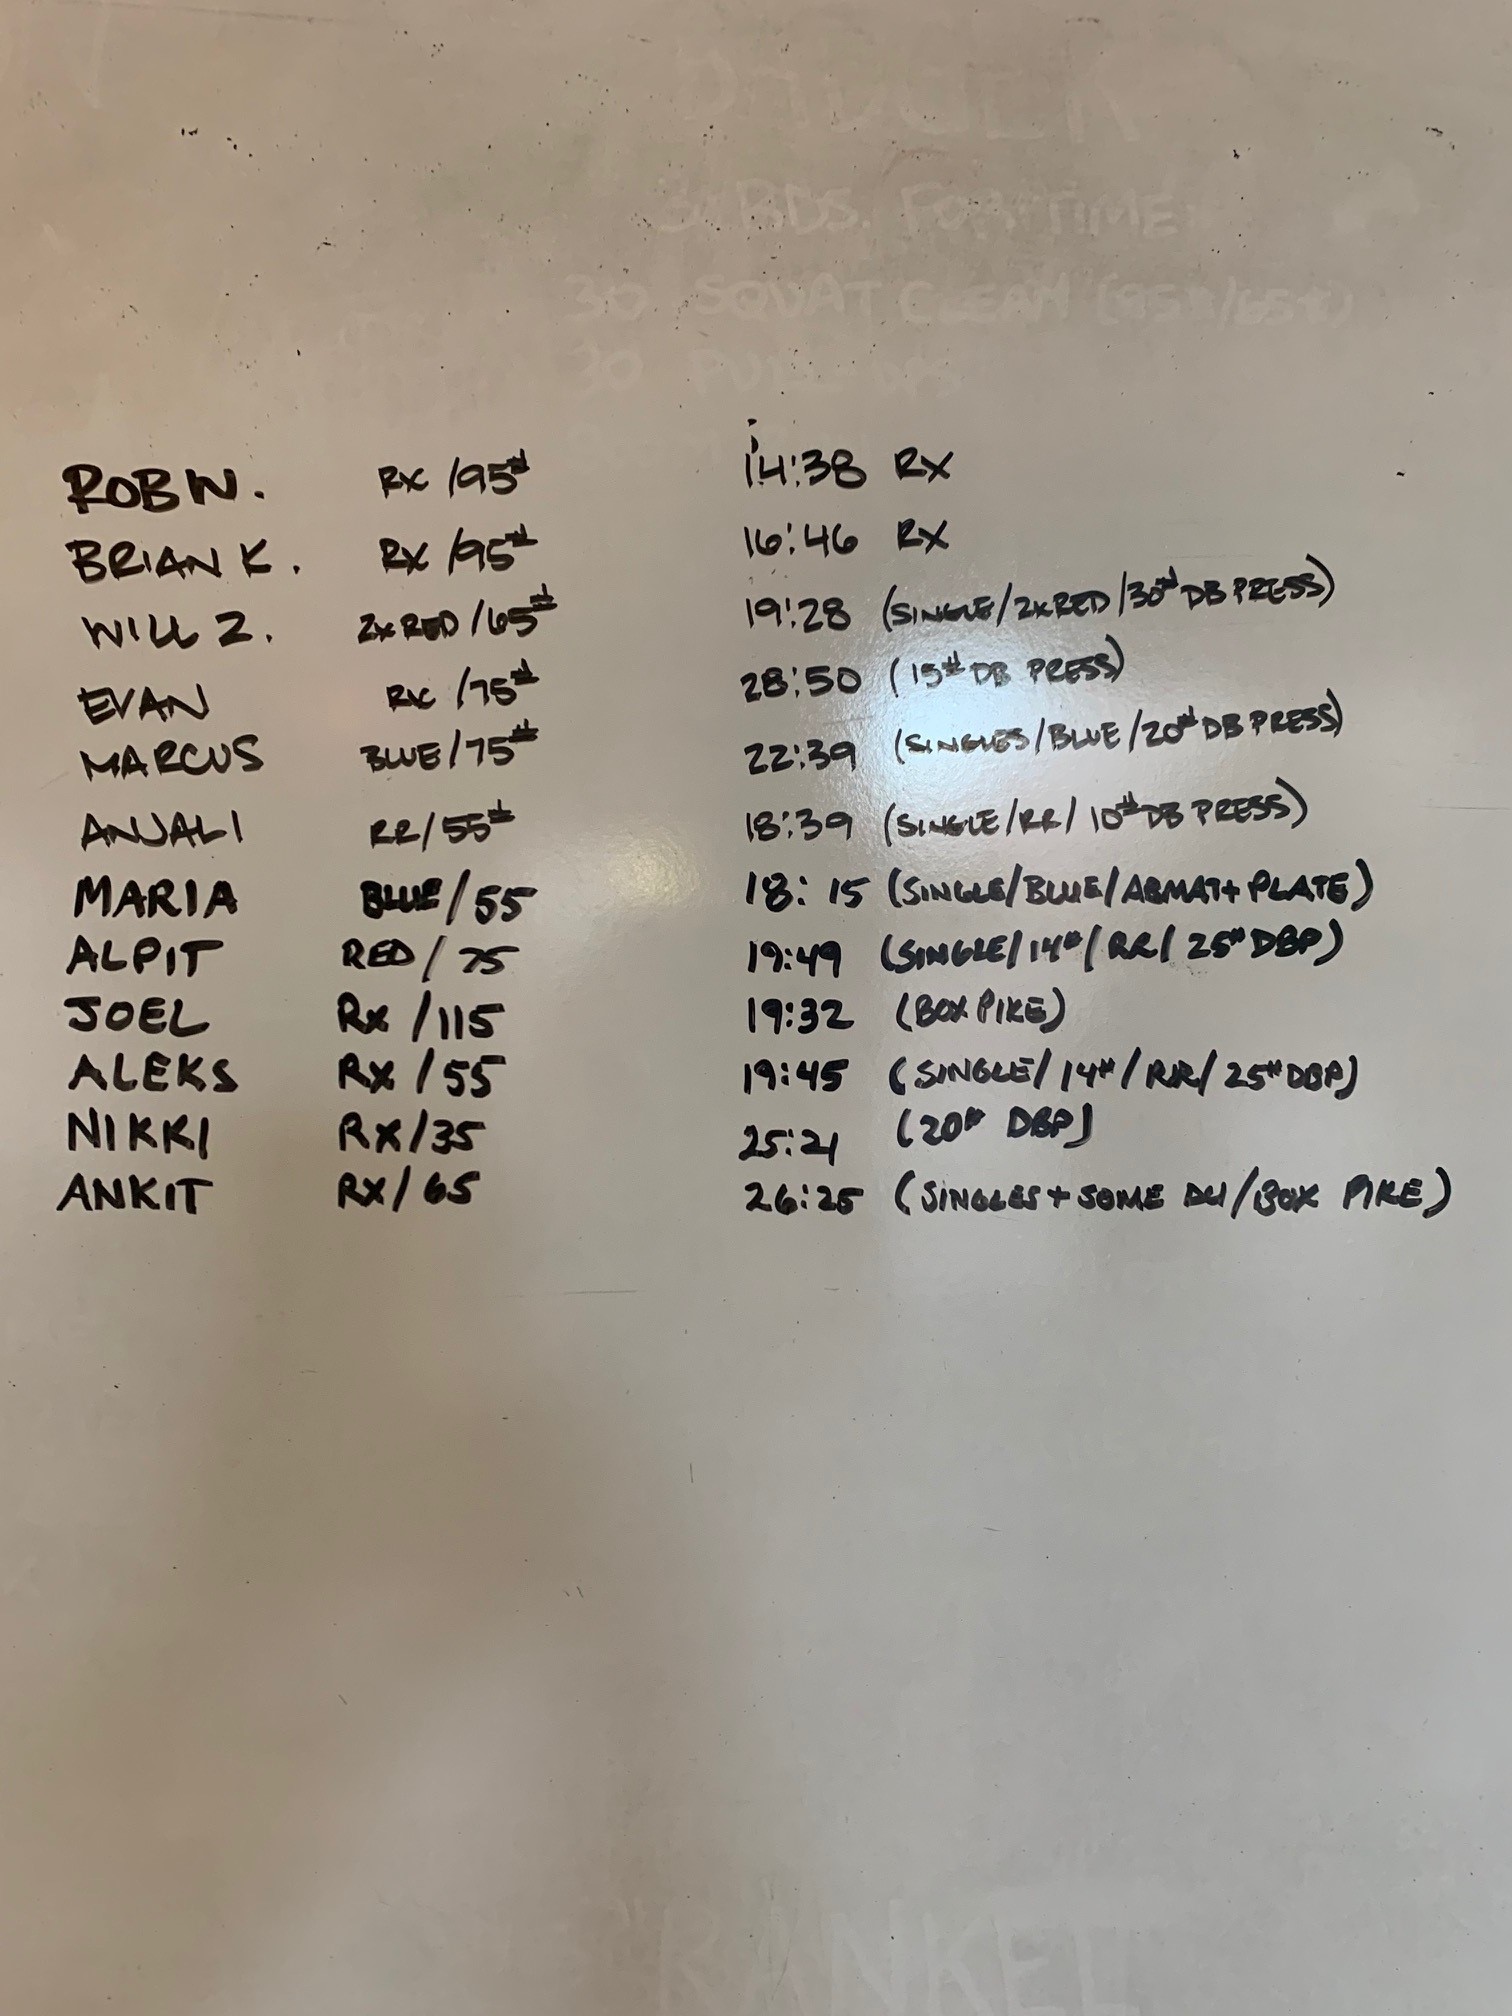 30 RDS. FOR TIME
30 SQUAT CLEAN (95#/65#)
30 PULL-UPS
ROB W. RX /95# 14:38 RX
BRIAN K. RX /95# 16:46 RX
WILL Z. 2xRED /65# 19:28 (SINGLE/2xRED/30# DB PRESS)
EVAN RX /75# 28:50 (15# DB PRESS)
MARCUS BLUE/75# 22:39 (SINGLES/BLUE/20# DB PRESS)
ANJALI RR/55# 18:39 (SINGLE/RR/10# DB PRESS)
MARIA BLUE/55 18:15 (SINGLE/BLUE/ABMAT+PLATE)
ALPIT RED/75 19:49 (SINGLE/14#/RR/25# DBP)
JOEL RX /115 19:32 (BOX PIKE)
ALEKS RX /55 19:45 (SINGLE/14#/RR/25# DBP)
NIKKI RX/35 25:21 (20# DBP)
ANKIT RX/65 26:25 (SINGLES+SOME DU/BOX PIKE)